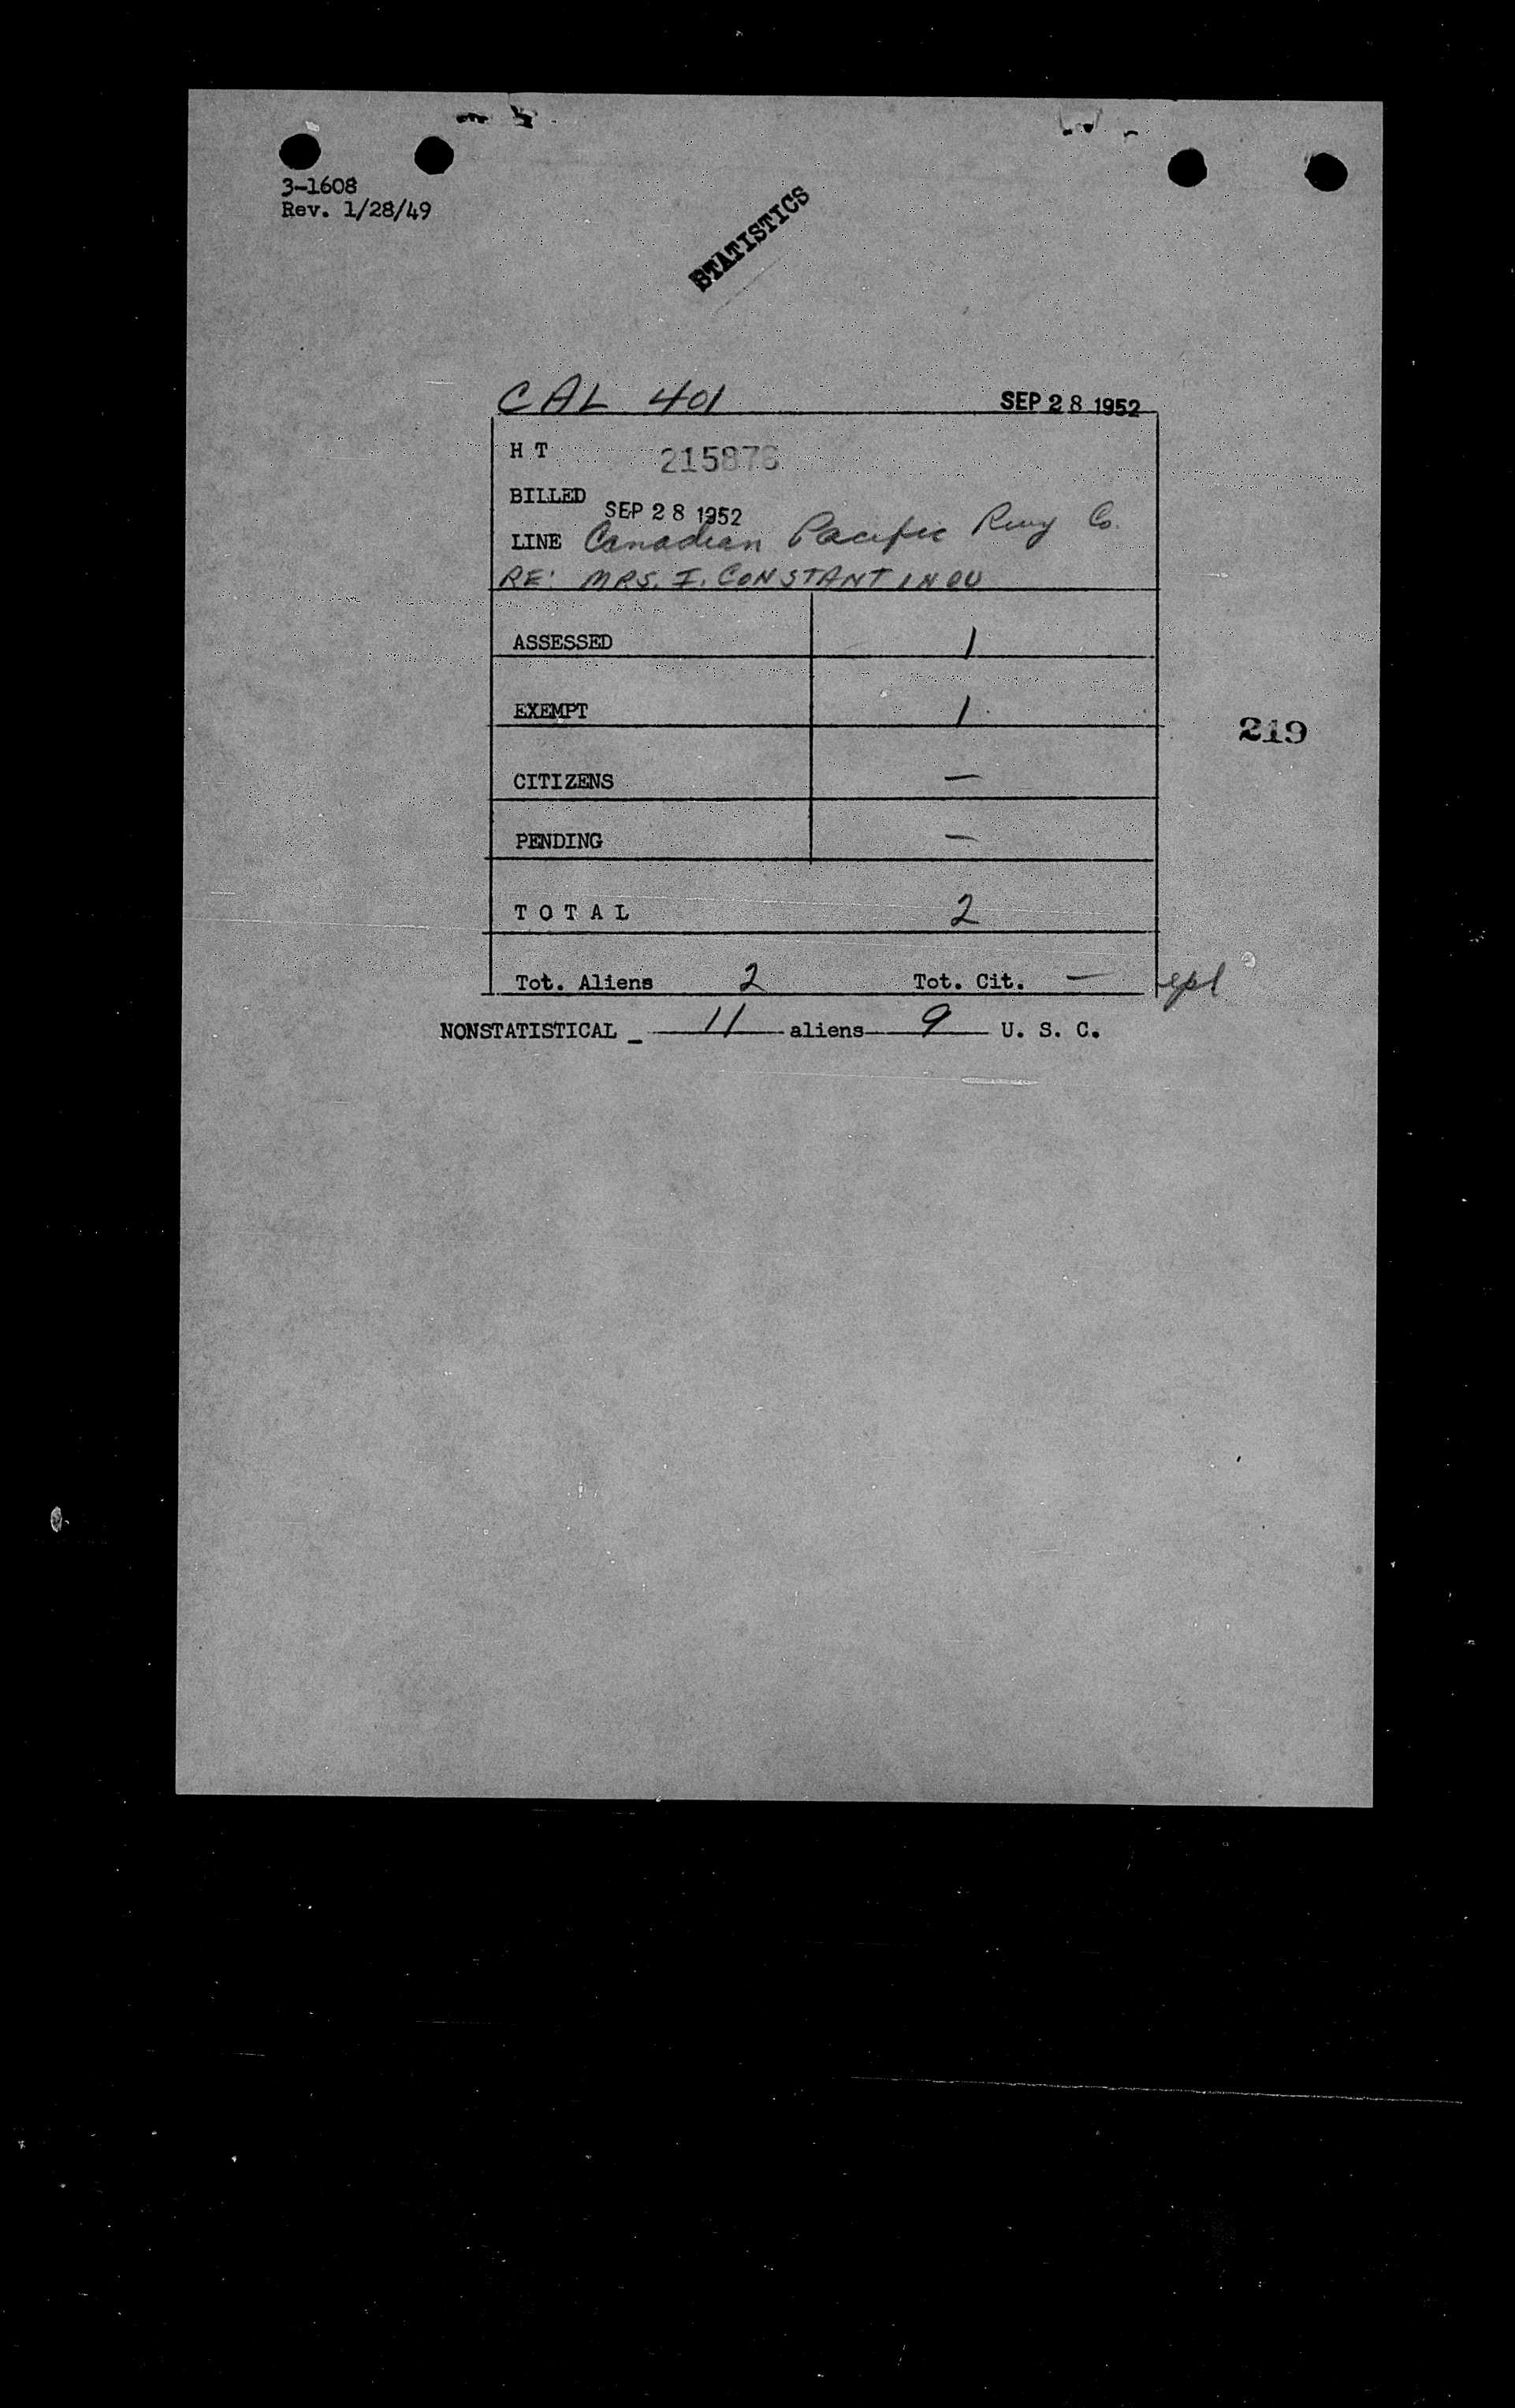 3-1608
Rev. 1/28/49
STATISTICS
CAL 401 SEP 28 1952
H T 215876
BILLED SEP 28 1952
LINE Canadian Pacific Rwy Co.
RE: MRS. I. CONSTANTINOU
ASSESSED 1
EXEMPT 1
219
CITIZENS —
PENDING —
T O T A L 2
Tot. Aliens 2 Tot. Cit. — epl
NONSTATISTICAL _ 11 aliens 9 U. S. C.